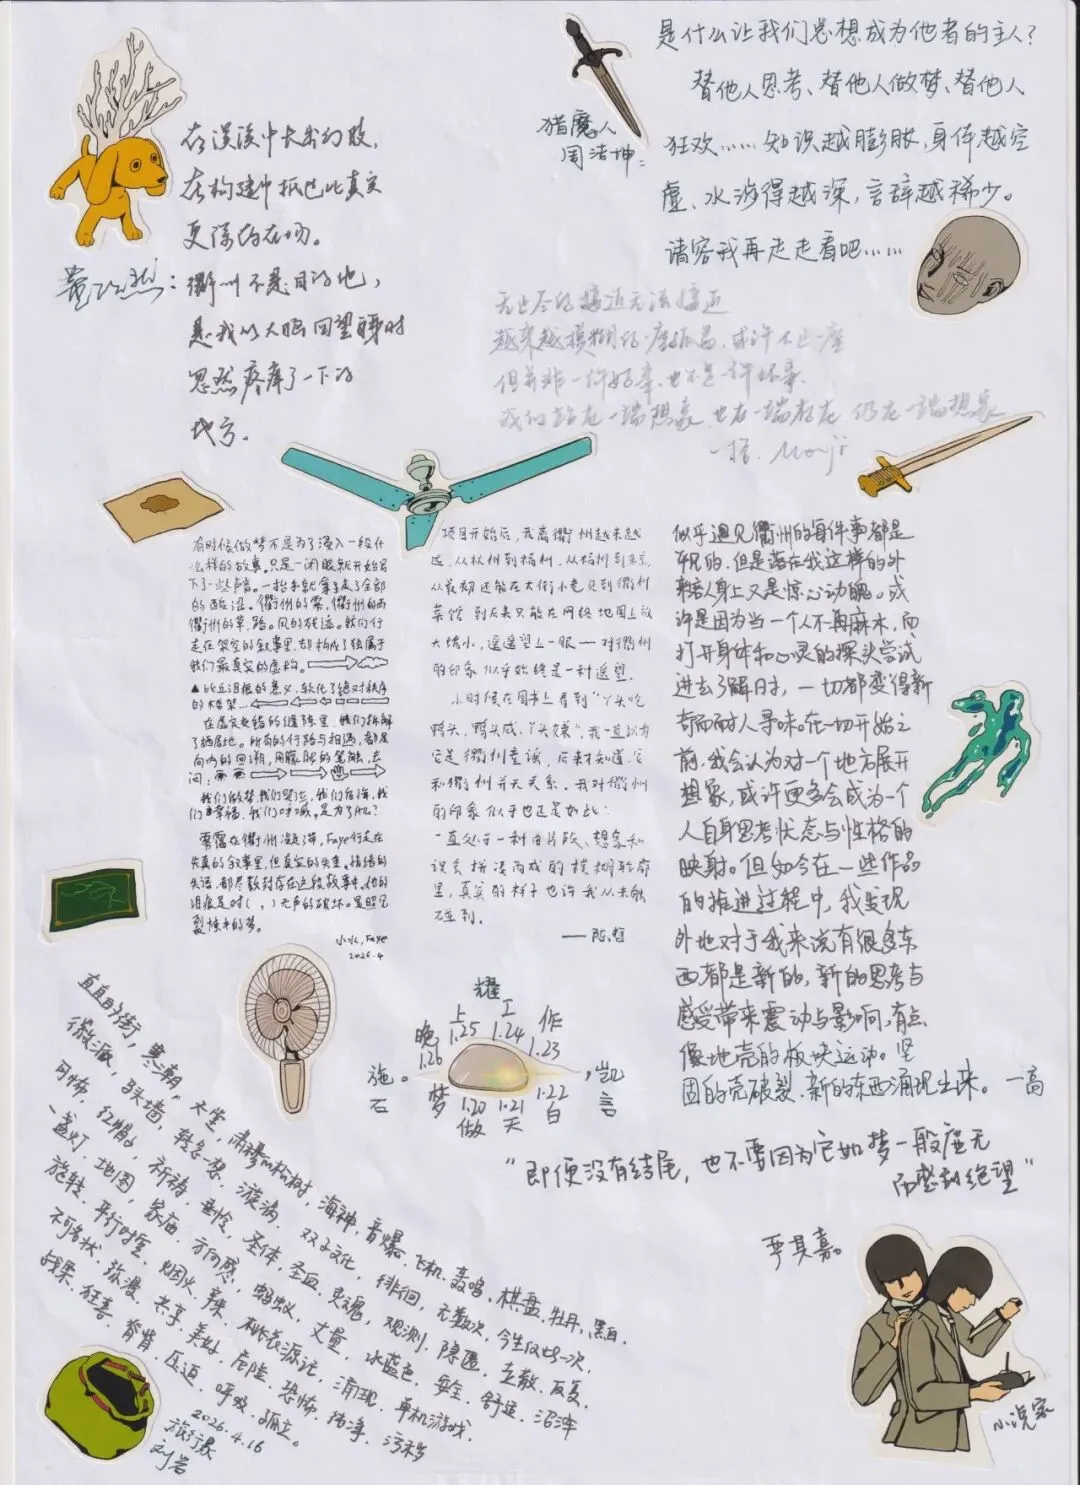 是什么让我们总想成为他者的主人？
替他人思考、替他人做梦、替他人
狂欢……知识越膨胀，身体越空
虚、水涉得越深，言辞越稀少。
请容我再走走看吧……
猎魔人
周洁坤：
在误读中长出幻肢，
在构建中抓住比真实
更深的在场。
衢州不是目的地，
是我从大脑回望腰时
忽然疼痛了一下的
地方。
无止尽的接近无法接近
越来越模糊的一座孤岛，或许不止一座
但并非一件好事，也不是一件坏事
我们站在一端想象，也在一端存在，仍在一端想象
有时候做梦不是为了潜入一段什
么样的故事。只是一闭眼就开始写
下了一些声音。一抬手就拿走了全部
的酸涩。衢州的雾，衢州的雨
衢州的草，路。风的死迹。我们行
走在架空的叙事里，却构成了独属于
我们最真实的虚构。
的木框架…
在虚实交错的缝隙里，我们拆解
了栖居地。所有的行路与相遇，都是
向内的回溯，用朦胧的笔触，去
问：
我们做梦，我们哭泣，我们后悔，我
们幸福，我们呼喊。是为了什么？
雾霭在衢州凝了滞，Faye行走在
失真的叙事里，但真实的失重。情绪的
失语，都尽数封存在这段故事中。他的
泪痕是对（ ，）无声的破坏。是照见
裂隙来的梦。
小水，Faye
2026.4
项目开始后，我离衢州越来越
远，从杭州到福州，从福州到东京，
从最初还能在大街小巷见到衢州
菜馆，到后来只能在网络地图上放
大缩小，遥遥望上一眼——对衢州
的印象似乎始终是一种遥望。
小时候在图书上看到“丫头吃
鸭头，鸭头咸，丫头嫌”，我一直以为
它是衢州童谣，后来才知道，它
和衢州并无关系。我对衢州
的印象似乎也正是如此：
一直处于一种由片段、想象和
误会拼凑而成的模糊轮廓
里，真实的样子也许我从未触
碰到。
——陈哲
似乎遇见衢州的每件事都是
平和的，但是落在我这样的外
来客人身上又是惊心动魄。或
许是因为当一个人不再麻木，而
打开身体和心灵的探头尝试
进去了解时，一切都变得新
奇而耐人寻味。在一切开始之
前，我会认为对一个地方展开
想象，或许更多会成为一个
人自身思考状态与性格的
映射。但如今在一些作品
的推进过程中，我发现
外地对于我来说有很多东
西都是新的，新的思考与
感受带来震动与影响，有点
像地壳的板块运动。坚
固的壳破裂，新的东西涌现出来。一高
耀
上 工
晚 1.25 1.24 作
1.26 1.23
施。 ，凯
石 言
梦 1.20 1.21 1.22
做 天 白
“即便没有结尾，也不要因为它如梦一般虚无
而感到绝望”
严其嘉。
小说家
直直的街，寒潮，大尘，肃穆的松树，海神，音爆，飞机，轰鸣，棋盘，牡丹，黑白，
微派，马头墙，转念一想，漩涡，双子文化，徘徊，无数次，今生仅此一次，
可怖，红帽子，祈祷，垂怜，圣体，圣血，灵魂，观测，隐匿，立敌，反复，
一盏灯，地图，家庙，方向感，蚂蚁，丈量，水蓝色，安全，舒适，沼泽
旋转，平行时空，烟火，辣，桃花源记，涌现，单机游戏，
不可名状，弥漫，共享，美好，危险，恐怖，洁净，污秽
战果，狂喜，脊背，压迫，呼吸，孤立。
2026.4.16
旅行家
刘岩